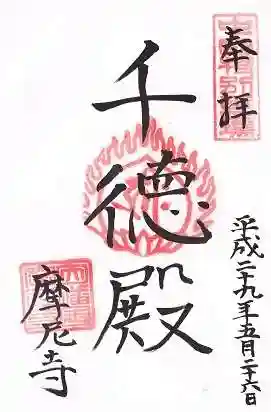 奉拝
千徳殿
平成二十九年五月二十六日
摩尼寺